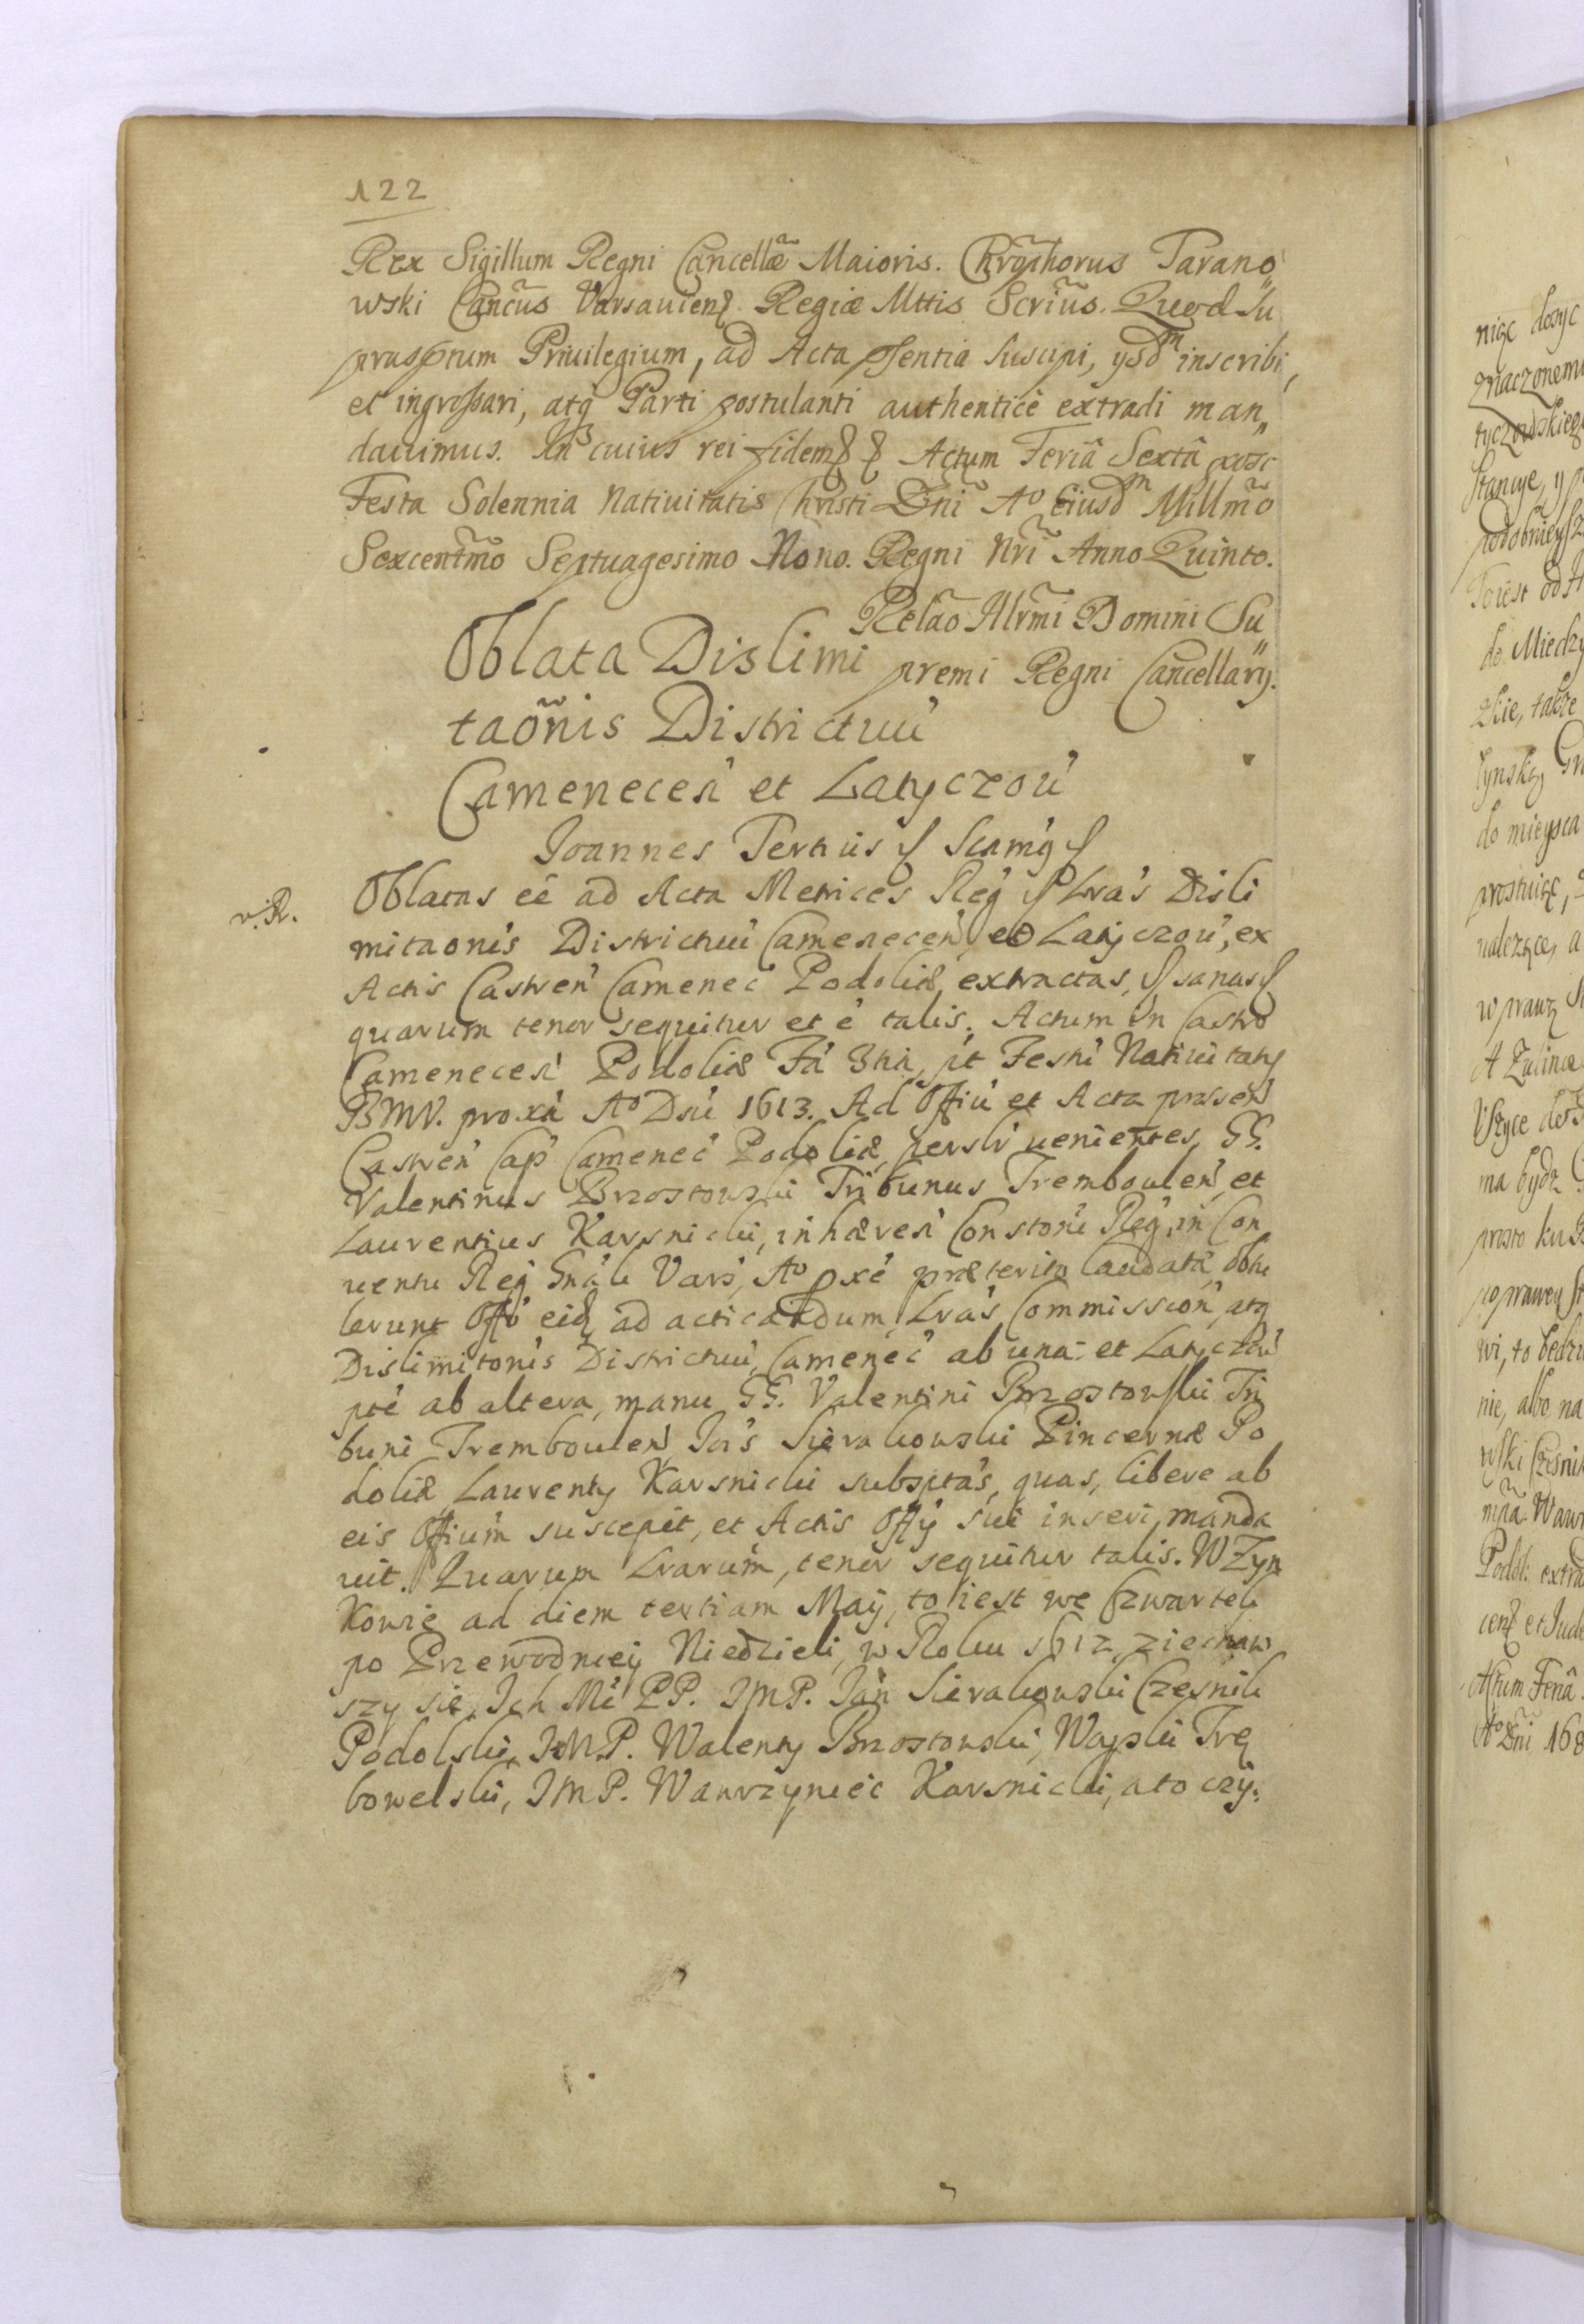 122
Rex Sigillum Regni Cancellæ Maioris. Chrõphorus Tarano
wski Cancũs Varsauien Regiæ Mttis Scriũs. Quod Su
prasptum Priuilegium, ad Acta pñsentia suscipi, ysdm inscribi,
et ingrossari, atq Parti postulanti authenticè extradi man„
dauimus. In cuius rei fidem Actum Feriâ Sextâ post
Festa Solennia Natiuitatis Christi Dñi Aº Eiusdm Millmõ
Sexcentmõ Septuagesimo Nono. Regni Nri Anno Quinto.
Relão Illrmi Domini Su„
premi Regni Cancellarÿ.
Oblata Dislimi
taõnis Districtuú
Cameneceń et Latyczoú
Joannes Tertius Scamg
v. R.
Oblatas eé ad Acta Metrices Reǵ Lrás Disli
mitaonís Districtuú Cameneceń, et Latyczoú, ex
Actis Castreń Camenec Podoliæ, extractas, sanas
quarum tenor sequitur et é talis. Actum in Castro
Cameneceń Podoliæ Fá 3tia, pt Festú Natiuitatis
BMV. proxá Aº Dní 1613. Ad Offiú et Acta præseń
Castreń Cap Camenec Podoliæ, perslr uenientes, GG.
Valentinus Brzostowski Tribunus Trembouleń, et
Laurentius Karsnicki, inhæreń Constoní Reǵ, in Con
uentu Reǵ Gnáli Vars, Aº pxé præterito laudatá, obtu
lerunt Offó eid ad acticandum, Lrás Commissioń, atq
Dislimitonís Districtuú, Camenec ab una et Latyczoú
pté ab altera, manu GG. Valentini Brzostowski Tri
buni Trembouleń, Jois Sierakowski Pincernæ Po
doliæ, Laurenty Karsnicki subsptás, quas, libere ab
eis Offium suscepit, et Actis Offÿ sui inseri, manda
uit. Quarum Lrarum, tenor sequitur talis. W Zyn
kowie ad diem tertiam Maÿ, to iest we Czwartek
po Przewodney Niedzieli, w Roku 1612 ziechaw
szy sie, Ich Mć PP. JMP. Jan Sierakowski Czesnik
Podolski, JMP. Walenty Brzostowski, Woyski Trę
bowelski, JMP. Wawrzyniec Karsnicki, a to czy:
niąc dosyc
znaczonemu
Stanuje, y
do Miedzy
zkie, takze
do mieysca
prostuiąc,
należące, a
w prawą
ma bydz
prosto ku
nie, albo na
Podol: extra
Actum Feriâ
Aº Dñi 168